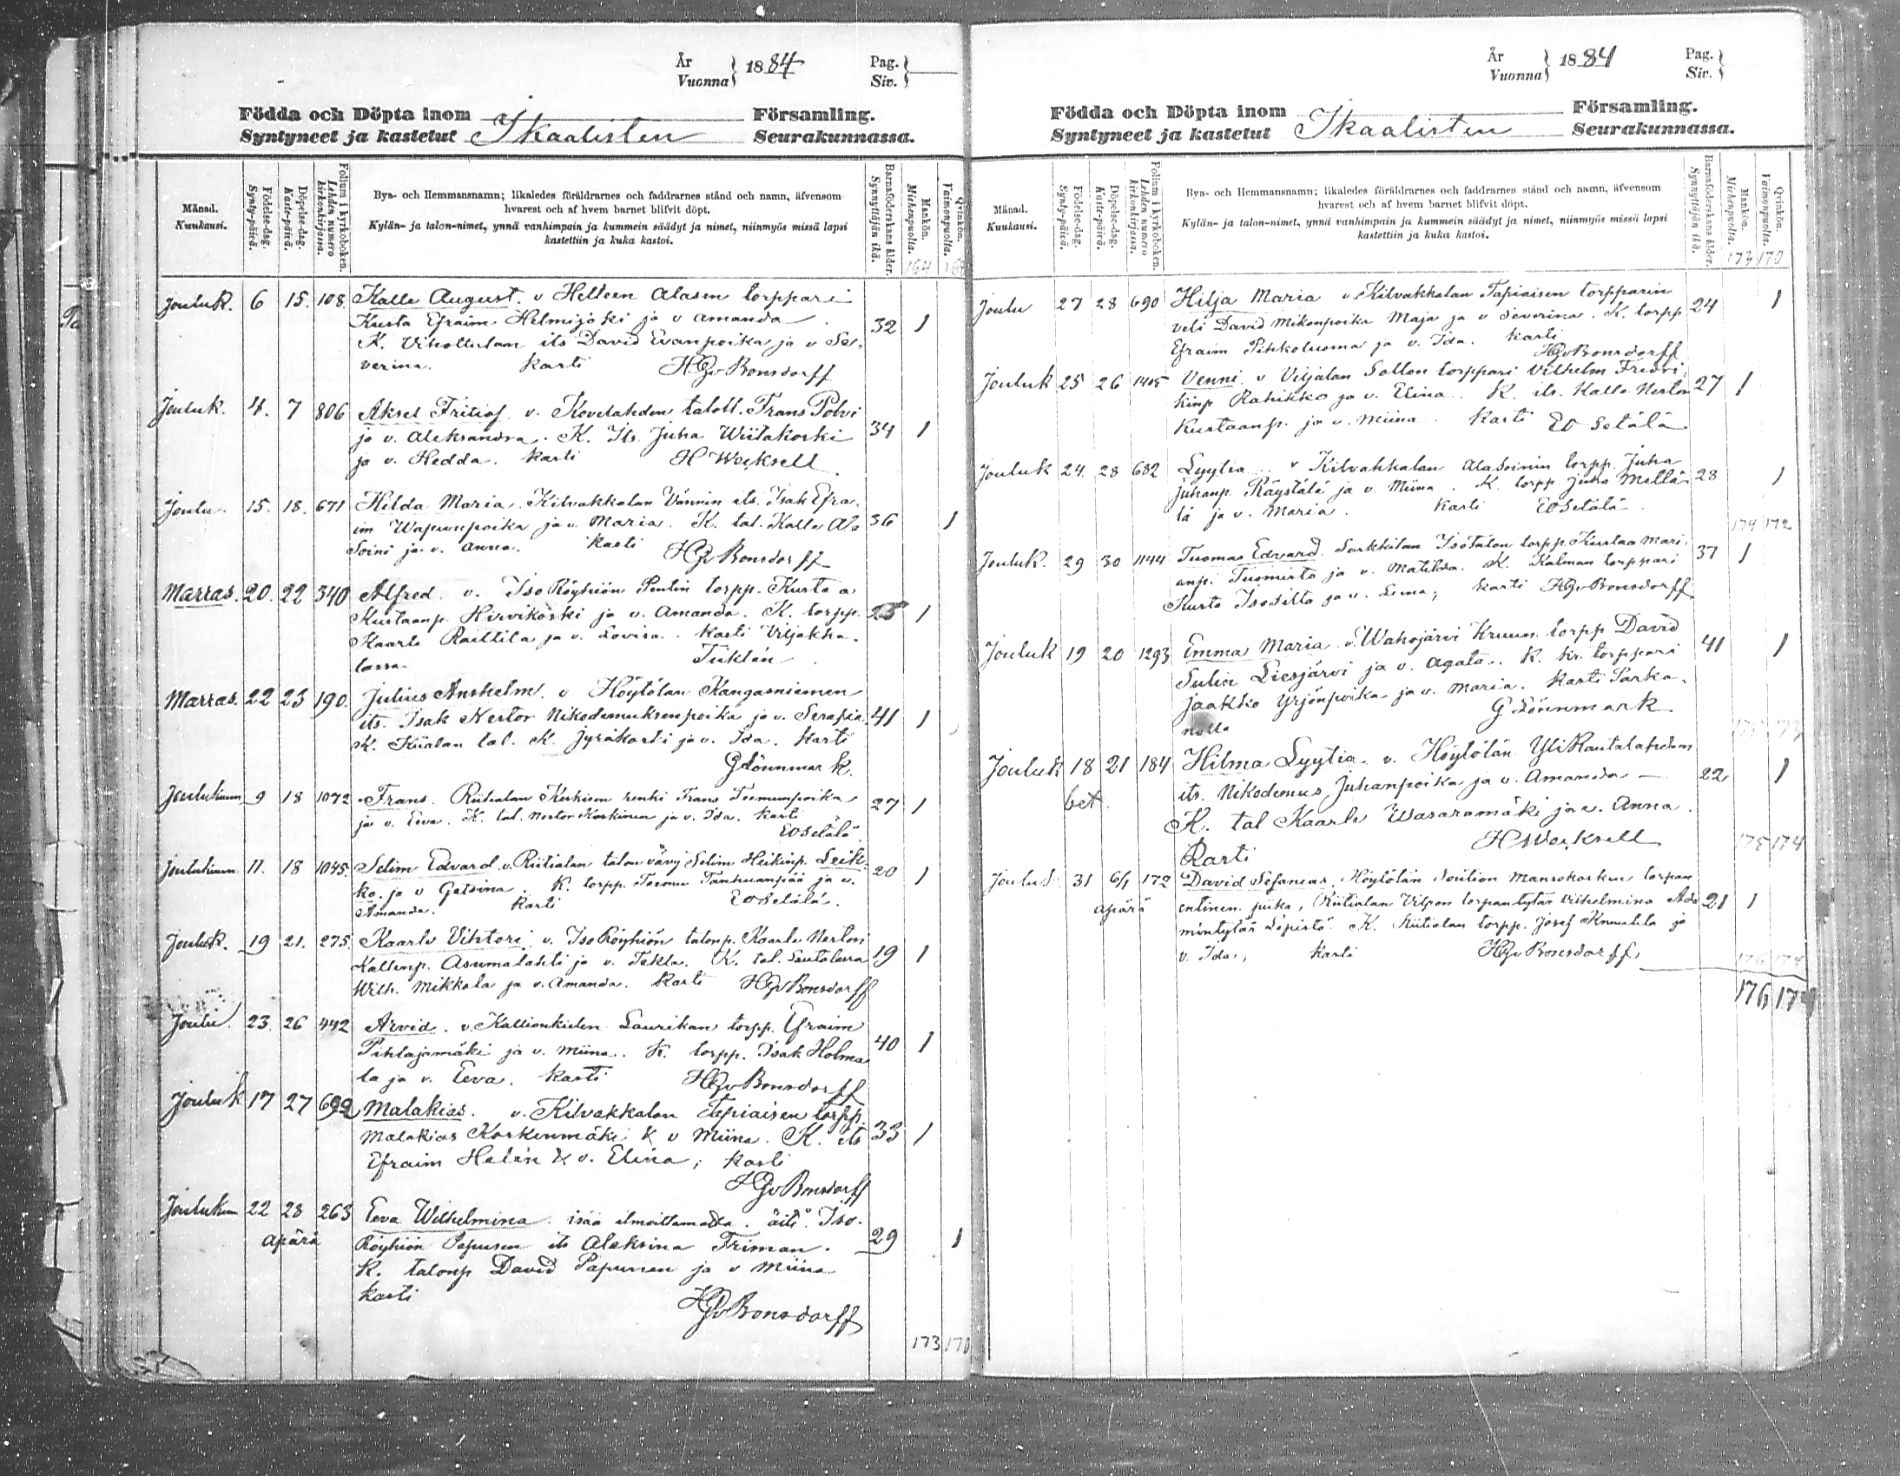 År
Vuonna } 1884 Pag.
Siv. }
Födda och Döpta inom Församling.
Syntyneet ja kastetut Ikaalisten Seurakunnassa.
Månad. Kuukausi.
Födelse-dag. Synty-päivä.
Döpelse-dag. Kaste-päivä.
Folium i kyrkoboken. Lehden numero kirkonkirjassa.
Bya- och Hemmansnamn; likaledes föräldrarnes och faddrarnes stånd och namn, äfvensom
hvarest och af hvem barnet blifvit döpt.
Kylän- ja talon-nimet, ynnä vanhimpain ja kummein säädyt ja nimet, niinmyös missä lapsi
kastettiin ja kuka kastoi.
Barnaföderskans ålder. Synnyttäjän ikä.
Mankön. Miehenpuolta. 164
Qvinkön. Vaimonpuolta.
Jouluk. 6 15. 108. Kalle August. v Helteen Alasen torppari
Kusta Efraim Helmijoski ja v Amanda 32 1
K. Vihattulan its David Evanpoika ja v Se-
verina. Kasti HGvBonsdorff
Jouluk. 4. 7 806 Aksel Fritiof v. Kovelahden taloll. Frans Polvi
ja v. Aleksandra. K. Its. Juha Wiitakoski 34 1
ja v. Hedda. Kasti H Wecksell
Joulu. 15. 18. 671 Hilda Maria. Kilvakkalan Vännin its. Isak Efra-
im Wapunpoika ja v. Maria. K. tal. Kalle Ala 36 1
Soini ja v. Anna. Kasti HGvBonsdorff
Marras. 20. 22 340 Alfred v. Iso Röyhiön Penlin torpp. Kusta
Kustaanp. Hirvikoski ja v. Amanda. K. torpp. 25 1
Kaarle Raittila ja v. Lovisa. Kasti Viljakka-
lassa Tuklén
Marras. 22 23 190. Julius Anshelm. v Höytölän Kangasniemen
its. Isak Nestor Nikodemuksenpoika ja v. Serafia 41 1
K. Kiialan tal. K. Jyräkoski ja v. Ida. Kasti
GLönnmark.
Joulukuun 9 18 1072 Frans. Riitialan Kerkisen renki Frans Toomunpoika
ja v. Eeva. K. tal. Nestor Koskinen ja v. Ida. Kasti 27 1
EOSetälä
Joulukuun 11. 18 1045. Selim Edvard v. Riitialan talon vävy Selim Heikinp. Leik-
ko ja v Gatarina. K. torpp. Toomu Tanhuanpää ja v. 20 1
Amanda. Kasti EOSetälä.
Jouluk. 19 21. 275. Kaarle Vihtori v. Iso Röyhiön talonp. Kaarle Nestori
Kallenp. Asumalahti ja v. Tekla. K. tal. 19 1
Wilh. Mikkola ja v. Amanda. Kasti HGvBonsdorff
Joulu. 23. 26 442 Arvid. v. Kallionkielen Laurikan torpp. Efraim
Pihlajamäki ja v. Miina. K. torpp. Isak Holma 40 1
la ja v. Eeva. Kasti HGvBonsdorff
Jouluk 17 27 692 Malakias. v. Kilvakkalan Tapiaisen torpp.
Malakias Koskenmäki & v Miina. K. its 33 1
Efraim Helén & v. Elina; Kasti
HGvBonsdorff
Joulukuu 22 28 263 Eeva Wilhelmina. isää ilmoittamatta. äiti: Iso-
apärä Röyhiön Papusen its Aleksina Friman. 29 1
K. talonp David Papunen ja v Miina
Kasti
HGvBonsdorff
173 170
År
Vuonna } 1884 Pag.
Siv. }
Födda och Döpta inom Församling.
Syntyneet ja kastetut Ikaalisten Seurakunnassa.
Månad. Kuukausi.
Födelse-dag. Synty-päivä.
Döpelse-dag. Kaste-päivä.
Folium i kyrkoboken. Lehden numero kirkonkirjassa.
Bya- och Hemmansnamn; likaledes föräldrarnes och faddrarnes stånd och namn, äfvensom
hvarest och af hvem barnet blifvit döpt.
Kylän- ja talon-nimet, ynnä vanhimpain ja kummein säädyt ja nimet, niinmyös missä lapsi
kastettiin ja kuka kastoi.
Barnaföderskans ålder. Synnyttäjän ikä.
Mankön. Miehenpuolta. 173
Qvinkön. Vaimonpuolta. 170
Joulu 27 28 690 Hilja Maria v. Kilvakkalan Tapiaisen torpparin
veli David Mikonpoika Maja ja v Severina. K. torpp 24 1
Efraim Pihkoluoma ja v. Ida. Kasti
HGvBonsdorff
Jouluk 25 26 1415 Venni v Viljalan Sollon torppari Vilhelm Fredri-
kinp Rahikko ja v. Elina. K. its. Kalle Nestor 27 1
Kustaanp. ja v. Miina. Kasti EO Setälä
Jouluk 24. 28 682 Lyylia v Kilvakkalan AlaSoinin torpp. Juha
Juhanp. Räystälä ja v. Miina. K. torpp Juha Mellä- 28 1
lä ja v. Maria. Kasti EOSetälä
174 172
Jouluk. 29 30 1144 Tuomas Edvard. Sarkkilan Isotalon torpp. Kustaa Mari-
anp. Tuomisto ja v. Matilda. K. Kalman torppari 37 1
Kusta Isosilta ja v. Liina; Kasti HGvBonsdorff
Jouluk 19 20 1293 Emma Maria. v. Wahojärvi Kruun. torpp David
Sulin Liesjärvi ja v. Agata. K. kr. torppari 41 1
Jaakko Yrjönpoika ja v. Maria. Kasti Parka-
nolla G Lönnmark
Jouluk 18 21 184 Hilma Lyytia v. Höytölän YliRautalahden
bet. its. Nikodemus Juhanpoika ja v. Amanda 22 1
K. tal Kaarle Wasaramäki ja v. Anna.
Kasti H Wecksell 175 174
Jouluk 31 6/1 172 David Sefanias. Höytölän Soution Mansokosken torpan
apärä entinen poika, Riitialan Vilpon torpantytär Vilhelmina Ada 21 1
mintytär Lepistö. K. Riitialan torpp. Josef Knuutila ja
v. Ida, Kasti HGvBonsdorff.
176 174
176 174